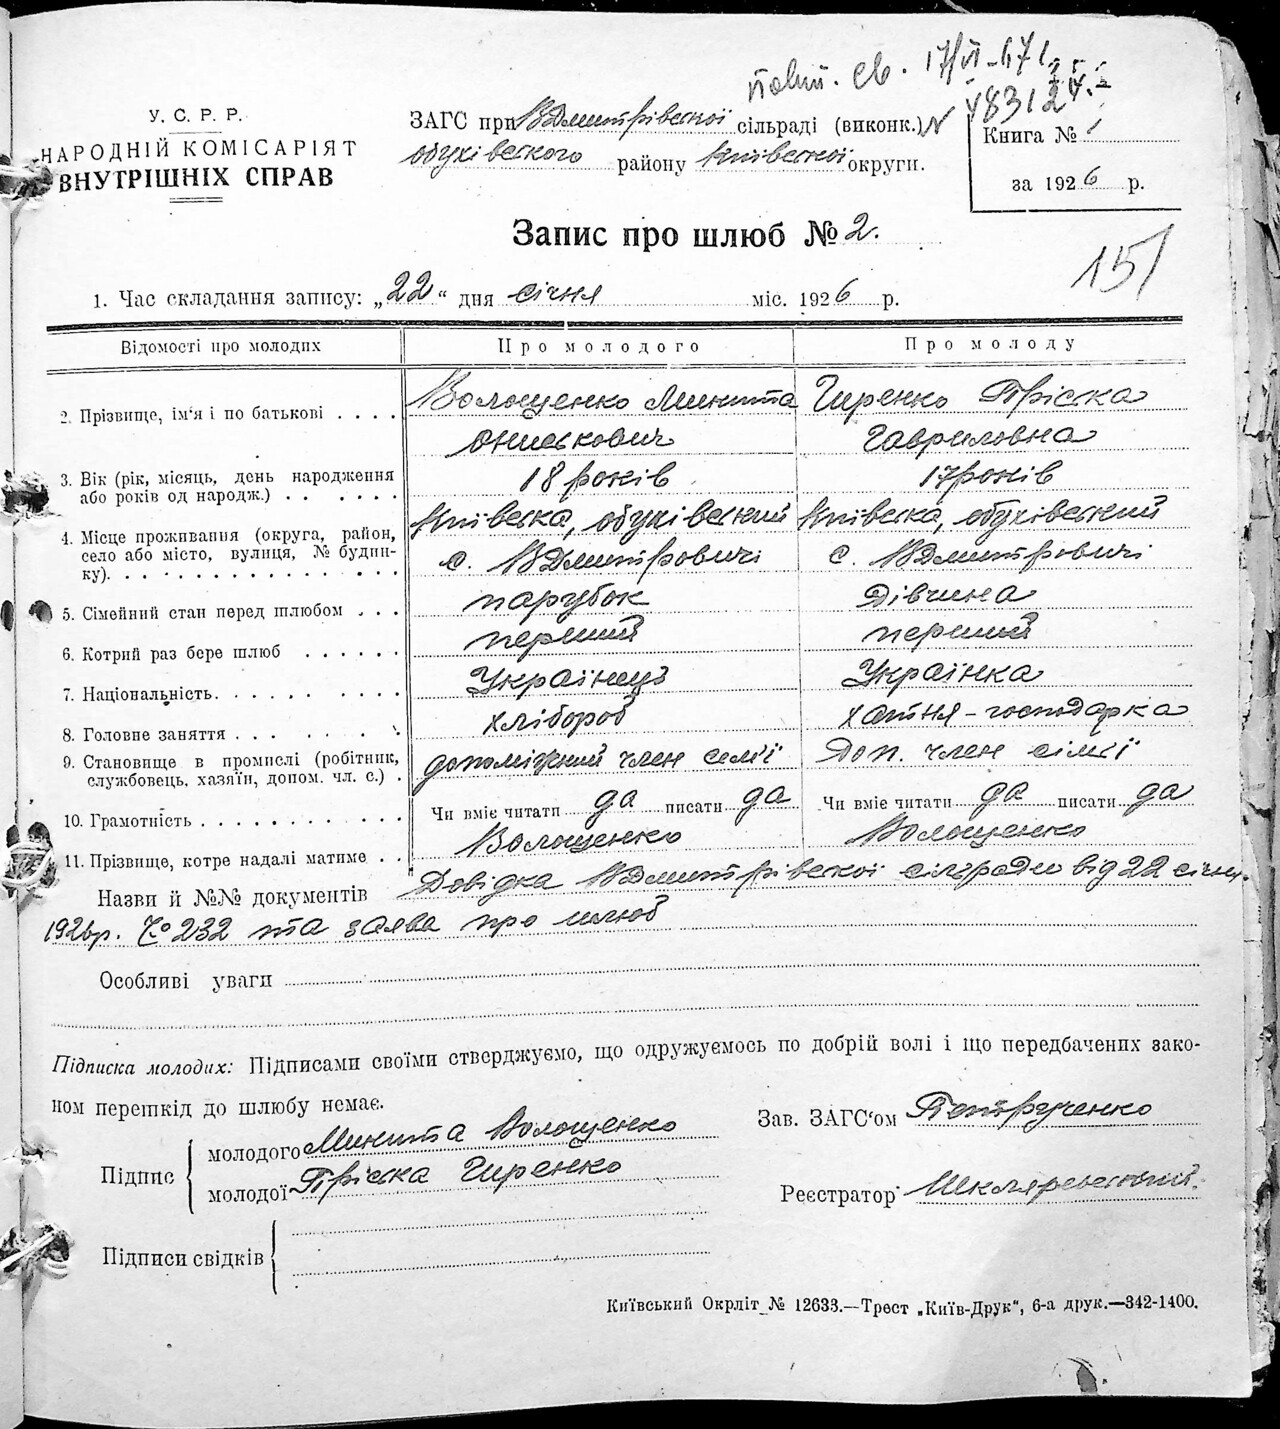 повт. св. 17/VI-47 г.
У. С. Р. Р.
НАРОДНІЙ КОМІСАРІЯТ
ВНУТРІШНІХ СПРАВ
ЗАГС при ВДмитрівської сільраді (виконк.) №
обухівського району Київської округи.
Книга № 1
за 1926 р.
Запис про шлюб № 2.
151
1. Час складання запису: „22“ дня січня міс. 1926 р.
Відомості про молодих
Про молодого
Про молоду
2. Прізвище, ім'я і по батькові . . . .
Волощенко Микита
Онискович
Гиренко Пріська
Гавриловна
3. Вік (рік, місяць, день народження
або років од народж.) . . . . . .
18 років
17 років
4. Місце проживання (округа, район,
село або місто, вулиця, № будин-
ку). . . . . . . . . . . . . . . .
Київська, обухівський
с. ВДмитровичі
Київська, обухівський
с. ВДмитровичі
5. Сімейний стан перед шлюбом . . .
парубок
Дівчина
6. Котрий раз бере шлюб . . . . . .
перший
перший
7. Національність. . . . . . . . . .
Українець
Українка
8. Головне заняття . . . . . . . . .
хлібороб
хатня-господарка
9. Становище в промислі (робітник,
службовець, хазяїн, допом. чл. с.) .
допоміжний член семї
Доп. член сімї
10. Грамотність . . . . . . . . . . . .
Чи вміє читати да писати да
Чи вміє читати да писати да
11. Прізвище, котре надалі матиме . .
Волощенко
Волощенко
Назви й №№ документів Довідка ВДмитрівської сільради від 22 січня
1926р. № 232 та заява про шлюб
Особливі уваги
Підписка молодих: Підписами своїми стверджуємо, що одружуємось по добрій волі і що передбачених зако-
ном перешкід до шлюбу немає.
Підпис
молодого Микита Волощенко
молодої Пріська Гиренко
Зав. ЗАГС'ом Петрученко
Реєстратор
Підписи свідків
Київський Окрліт № 12633.—Трест „Київ-Друк“, 6-а друк.—342-1400.